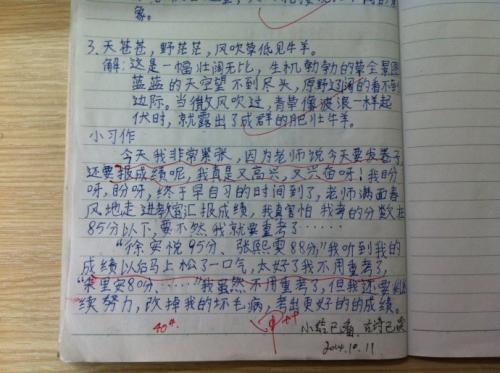 象。
3. 天苍苍，野茫茫，风吹草低见牛羊。
解：这是一幅壮阔无比，生机勃勃的草全景图
蓝蓝的天空望不到尽头，原野辽阔的看不到
边际。当微风吹过，青草像波浪一样起
伏时，就露出了成群的肥壮牛羊。
小习作
今天我非常紧张，因为老师说今天要发卷子
还要报成绩呢，我真是又高兴，又兴奋呀！我盼
呀，盼呀，终于早自习的时间到了，老师满面春
风地走进教室汇报成绩，我真害怕我考的分数在
85分以下，要不然我就要重考了……
“徐安悦95分、张熙雯88分，”我听到我的
成绩以后马上松了一口气，太好了我不用重考了，
里安80分、……”我虽然不用重考了，但我还要继
续努力，改掉我的坏毛病，考出更好的的成绩。
40
小结已看，古诗已
2014.10.11